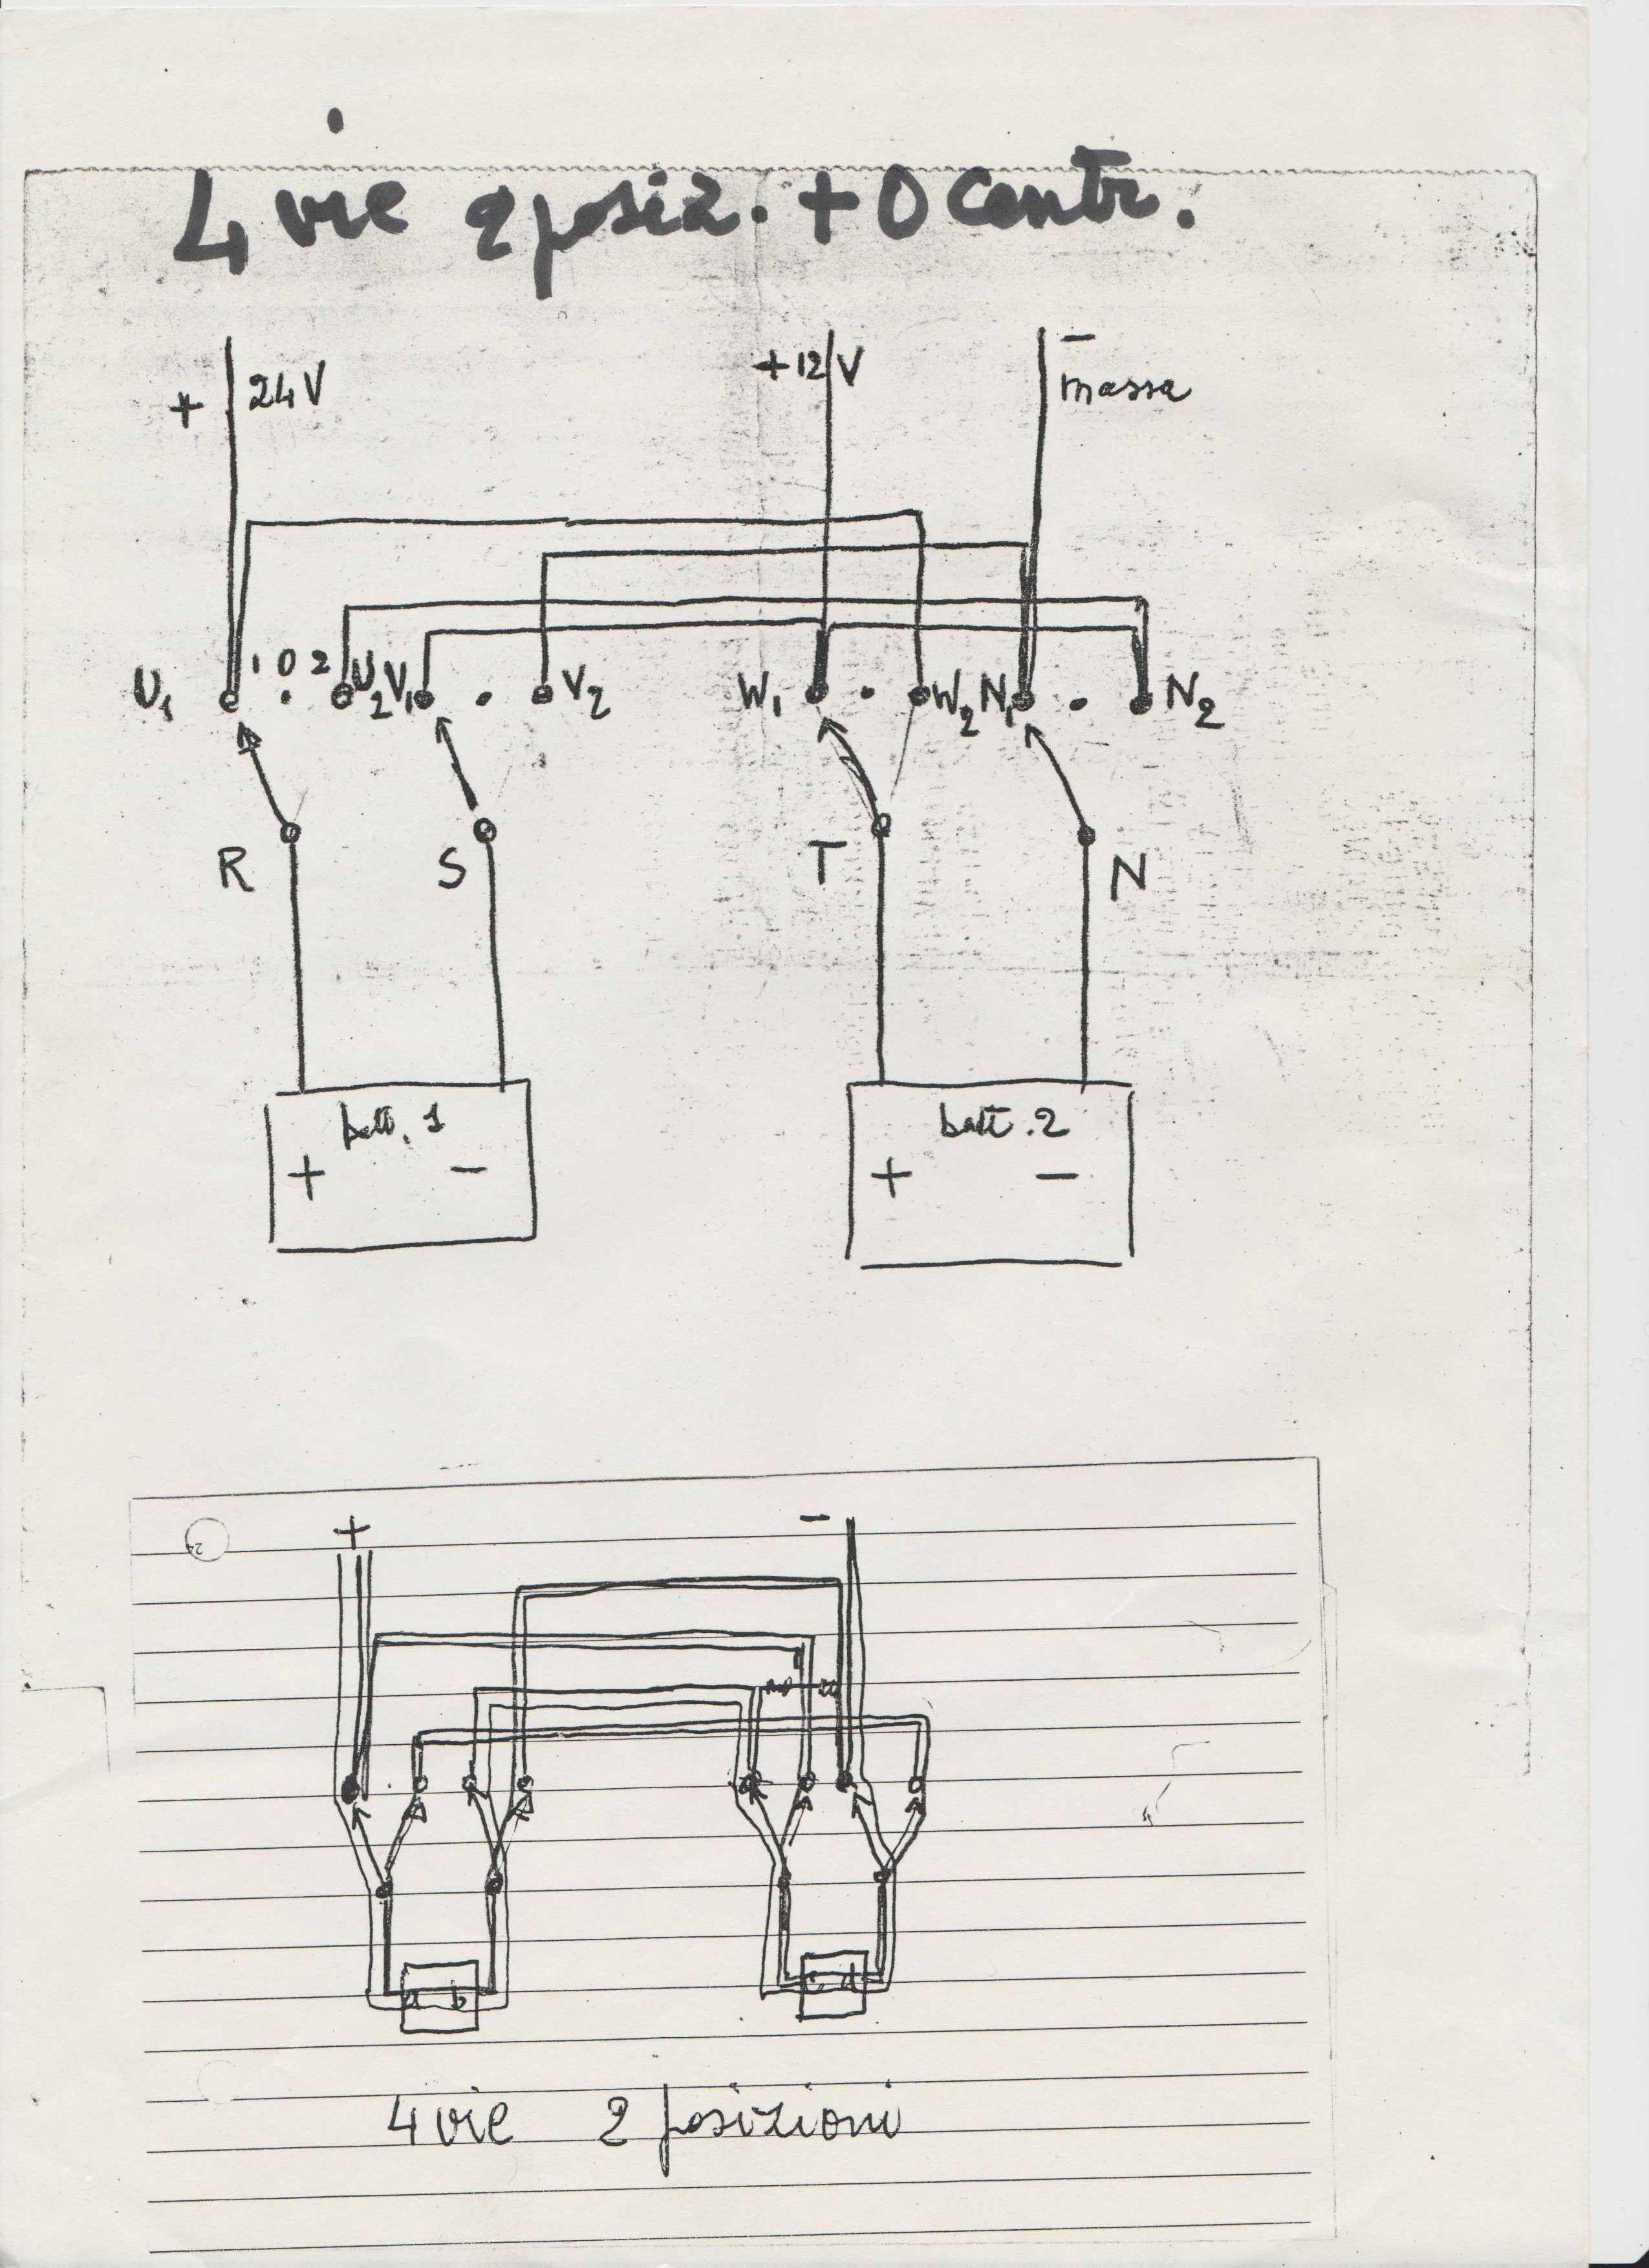 4 vie 2 posiz. + 0 centr.
+ 24V +12V - massa
U1 1 0 2 U2 V1 V2 W1 W2 N1 N2
R S T N
batt. 1 batt. 2
+ - + -
+ -
a b c d
4 vie 2 posizioni